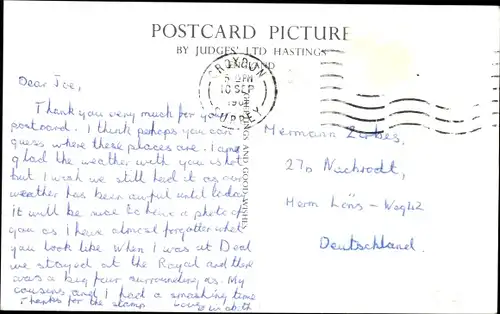 POSTCARD PICTURE
BY JUDGES' LTD HASTINGS
ENGLAND
CROYDON
5 PM
10 SEP
SURREY
GREETINGS AND GOOD WISHES
Dear Joe,
Thank you very much for your
postcard. I think perhaps you can
guess where these places are. I am
glad the weather with you is hot
but I wish we still had it as our
weather has been awful until today
it will be nice to have a photo of
you as I have almost forgotten what
you look like When I was at Deal
we stayed at the Royal and there
was a big fair surrounding us. My
cousins and I had a smashing time
Thanks for the stamp Love
Hermann
270 Nachrodt,
Herm Löns - Weg 42
Deutschland.